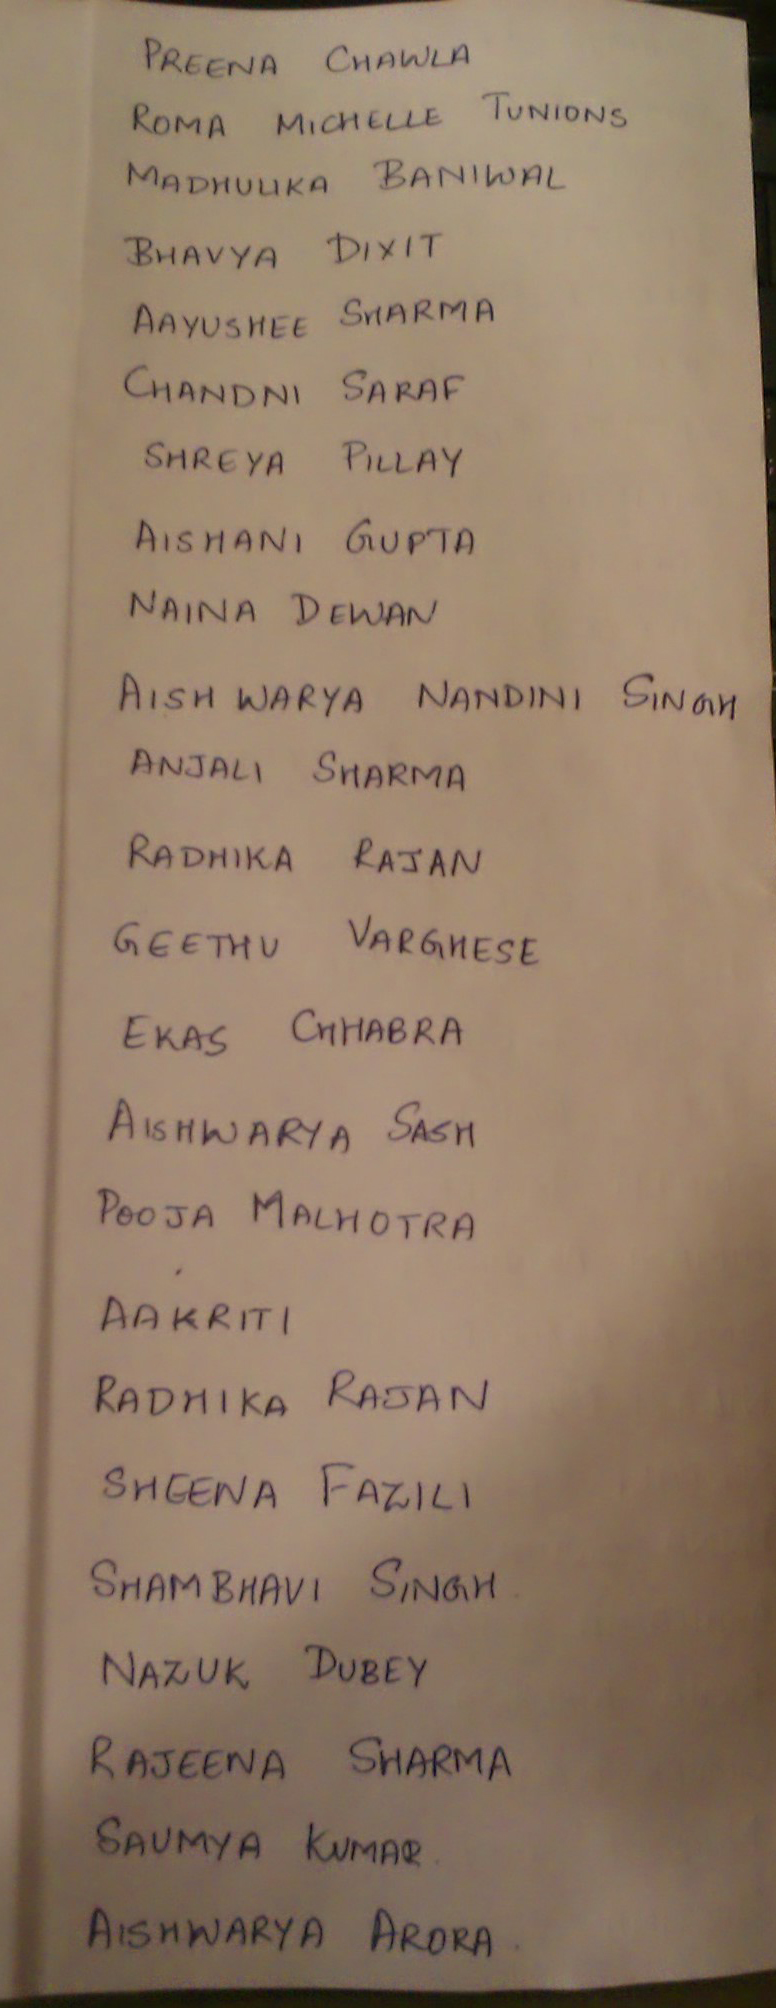 PREENA CHAWLA
ROMA MICHELLE TUNIONS
MADHULIKA BANIWAL
BHAVYA DIXIT
AAYUSHEE SHARMA
CHANDNI SARAF
SHREYA PILLAY
AISHANI GUPTA
NAINA DEWAN
AISHWARYA NANDINI SINGH
ANJALI SHARMA
RADHIKA RAJAN
GEETHU VARGHESE
EKAS CHHABRA
AISHWARYA SASH
POOJA MALHOTRA
AAKRITI
RADHIKA RAJAN
SHEENA FAZILI
SHAMBHAVI SINGH
NAZUK DUBEY
RAJEENA SHARMA
SAUMYA KUMAR
AISHWARYA ARORA